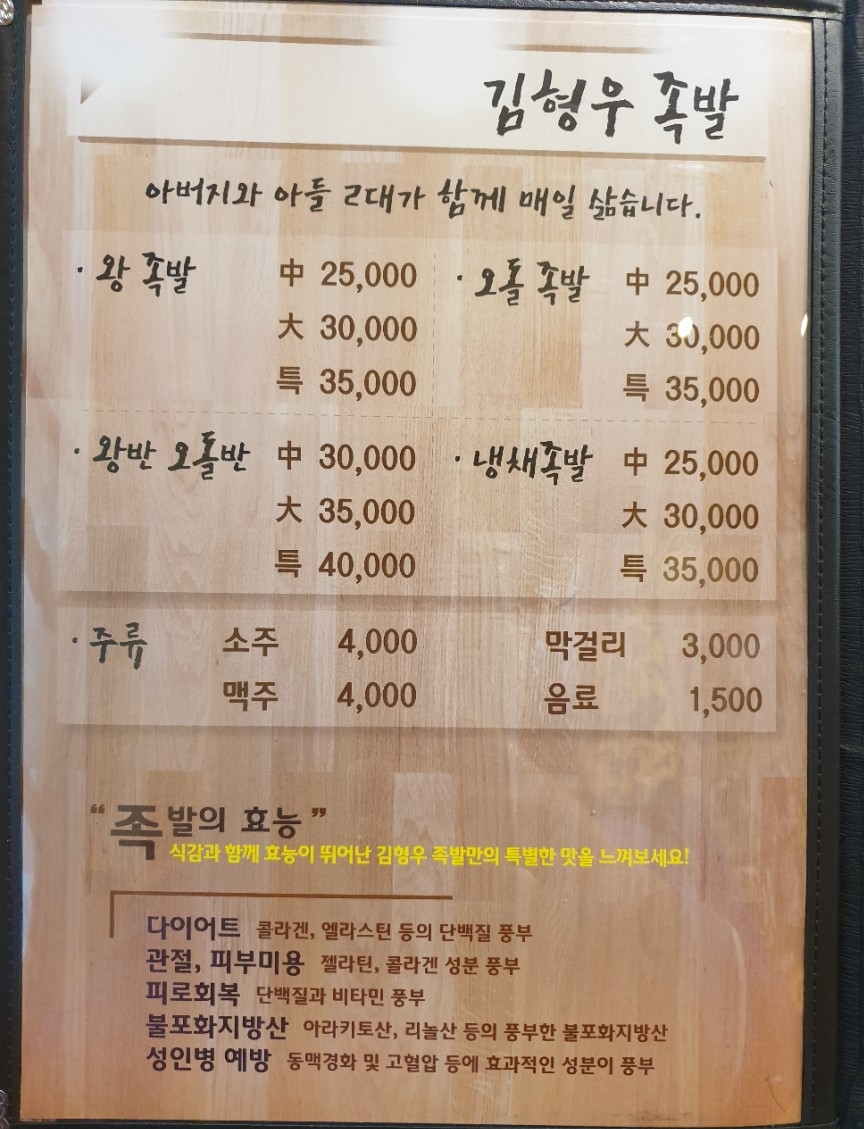 김형우 족발
아버지와 아들 2대가 함께 매일 삶습니다.
· 왕 족발 中 25,000
大 30,000
특 35,000
· 오돌 족발 中 25,000
大 30,000
특 35,000
· 왕반 오돌반 中 30,000
大 35,000
특 40,000
· 냉채족발 中 25,000
大 30,000
특 35,000
· 주류 소주 4,000 막걸리 3,000
맥주 4,000 음료 1,500
“족발의 효능”
식감과 함께 효능이 뛰어난 김형우 족발만의 특별한 맛을 느껴보세요!
다이어트 콜라겐, 엘라스틴 등의 단백질 풍부
관절, 피부미용 젤라틴, 콜라겐 성분 풍부
피로회복 단백질과 비타민 풍부
불포화지방산 아라키토산, 리놀산 등의 풍부한 불포화지방산
성인병 예방 동맥경화 및 고혈압 등에 효과적인 성분이 풍부